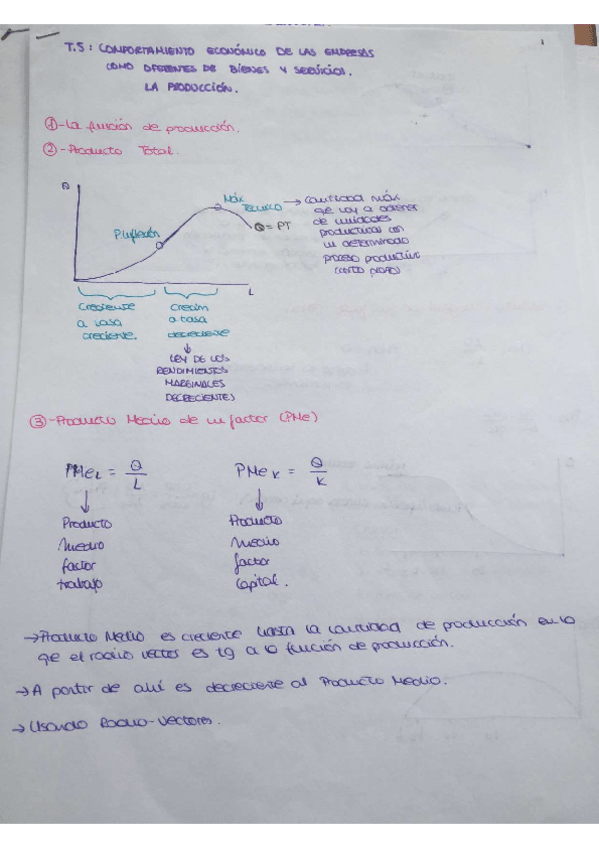 T.5: COMPORTAMIENTO ECONÓMICO DE LAS EMPRESAS
COMO OFERENTES DE BIENES Y SERVICIOS.
LA PRODUCCIÓN.
1
①-La función de producción.
②-Producto Total.
Q
Máx
Técnico
P.Inflexión
Q = PT
L
→ Cantidad máx
qe voy a obtener
de unidades
productivas con
un determinado
proceso productivo
(corto plazo)
Creciente
a tasa
creciente.
Crecim
a tasa
decreciente
↓
LEY DE LOS
RENDIMIENTOS
MARGINALES
DECRECIENTES
③-Producto Medio de un factor (PMe)
PMeL = Q/L
↓
Producto
medio
factor
trabajo
PMeK = Q/K
↓
Producto
medio
factor
capital.
→Producto Medio es creciente hasta la cantidad de producción en la
qe el radio vector es tg a la función de producción.
→A partir de ahí es decreciente al Producto Medio.
→Usando Radio-Vectores.